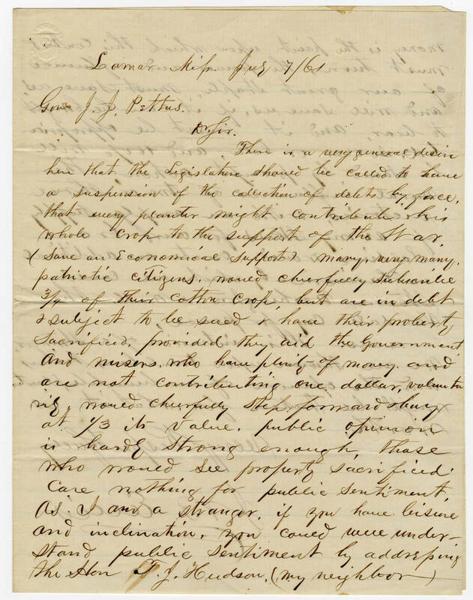 Lamar Miss July 7/61
Gov. J. J. Pettus.
Dr Sir.
There is a very general desire
here that the Legislature should be called to have
a suspension of the collection of debts by force,
that every planter might contribute his
whole crop to the support of the War.
(Save an Economical support) many, very many,
patriotic citizens, would cheerfully subscribe
3/4 of their cotton crop, but are in debt
& subject to be sued & have their property
sacrificed, provided they aid the Government
And misers, who have plenty of money, and
are not contributing one dollar, voluntar
ily would cheerfully step forward & buy
at 1/3 its value. public opinion
is hardly strong enough, those
who would see property sacrificed
care nothing for public sentiment,
As I am a stranger, if you have leisure
and inclination, you could well under-
stand public sentiment by addressing
the Hon J. Hudson, (my neighbor)